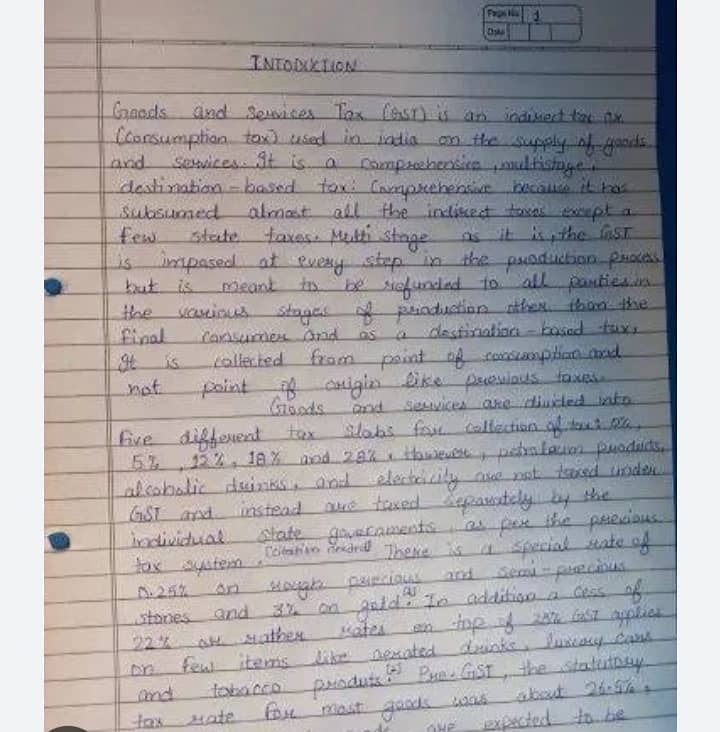 Page No. 1
Date
INTODUCTION
Goods and Services Tax (GST) is an indirect tax or
(consumption tax) used in india on the supply of goods
and services. It is a comprehensive, multistage,
destination-based tax: Comprehensive because it has
subsumed almost all the indirect taxes except a
few state taxes. Multi stage as it is, the GST
is imposed at every step in the production process
but is meant to be refunded to all parties in
the various stages of production other than the
final consumer and as a destination-based tax,
It is collected from point of consumption and
not point of origin like previous taxes.
Goods and services are divided into
five different tax slabs for collection of tax: 0%,
5%, 12%, 18% and 28%. However, petroleum products,
alcoholic drinks, and electricity are not taxed under
GST and instead are taxed separately by the
individual state governments, as per the previous
tax system. [citation needed] There is a special rate of
0.25% on rough precious and semi-precious
stones and 3% on gold. In addition a cess of
22% or other rates on top of 28% GST applies
on few items like aerated drinks, luxury cars
and tobacco products. Pre-GST, the statutory
tax rate for most goods was about 26.5%
are expected to be